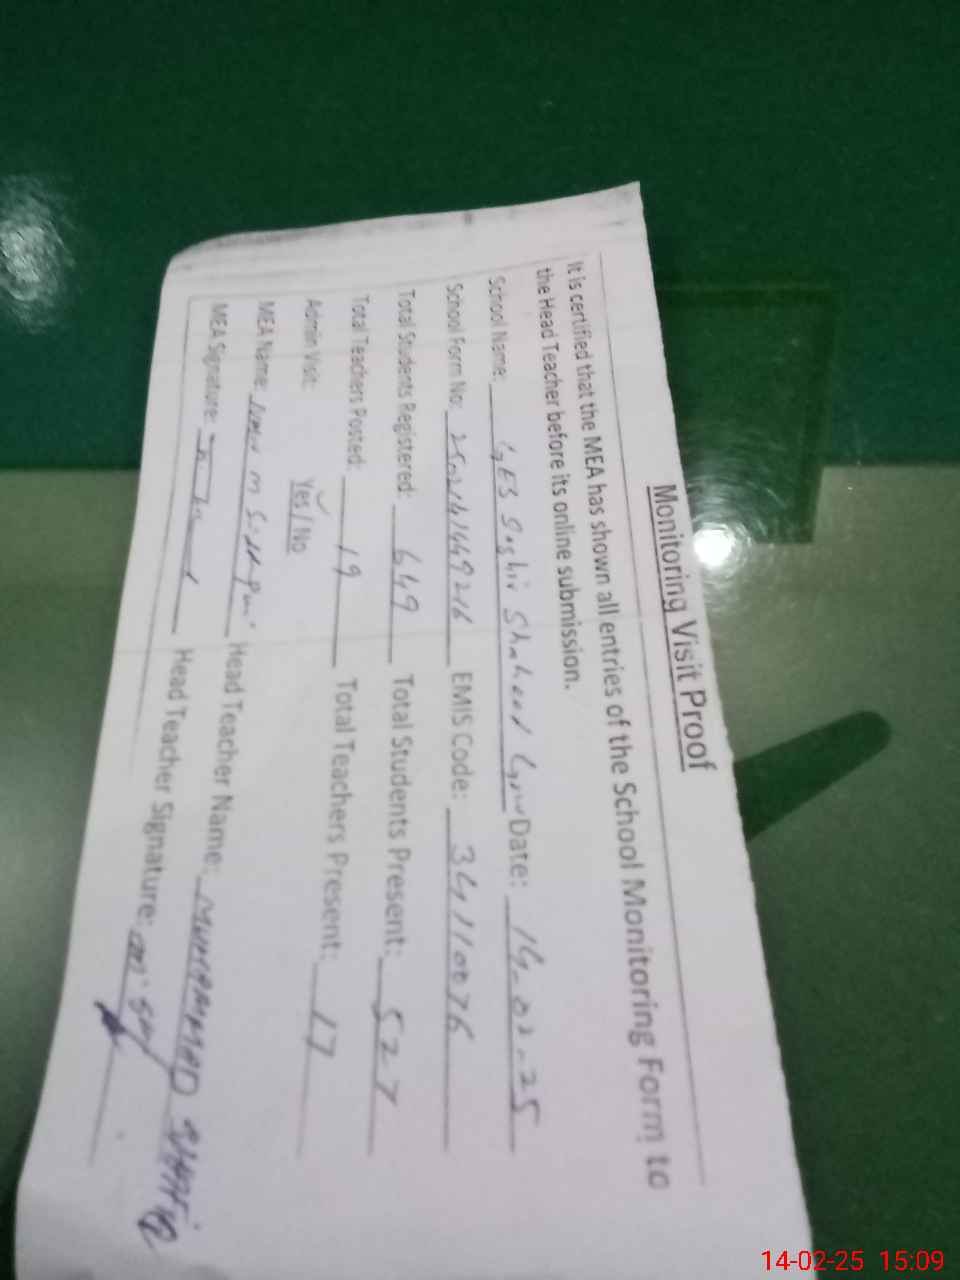 Monitoring Visit Proof
It is certified that the MEA has shown all entries of the School Monitoring Form to
the Head Teacher before its online submission.
School Name: GES Bashir Shaheed Date: 14-02-25
School Form No: EMIS Code: 34110076
Total Students Registered: 649 Total Students Present: 527
Total Teachers Posted: 19 Total Teachers Present: 17
Admin Visit: Yes / No
MEA Name: Head Teacher Name: MUHAMMAD SHAFIQ
MEA Signature: Head Teacher Signature:
14-02-25 15:09